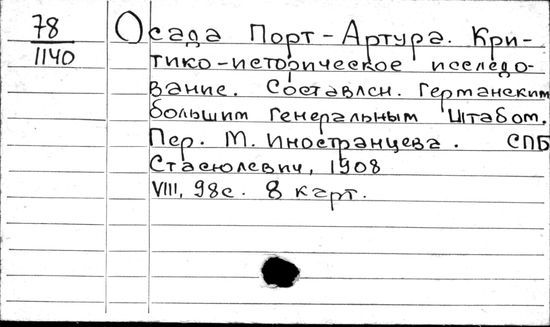 78
1140
Осада Порт-Артура. Кри-
тико-историческое исследо-
вание. Составлен. Германским
большим Генеральным Штабом.
Пер. М. Иностранцева. СПБ
Стасюлевич, 1908
VIII, 98с. 8 карт.